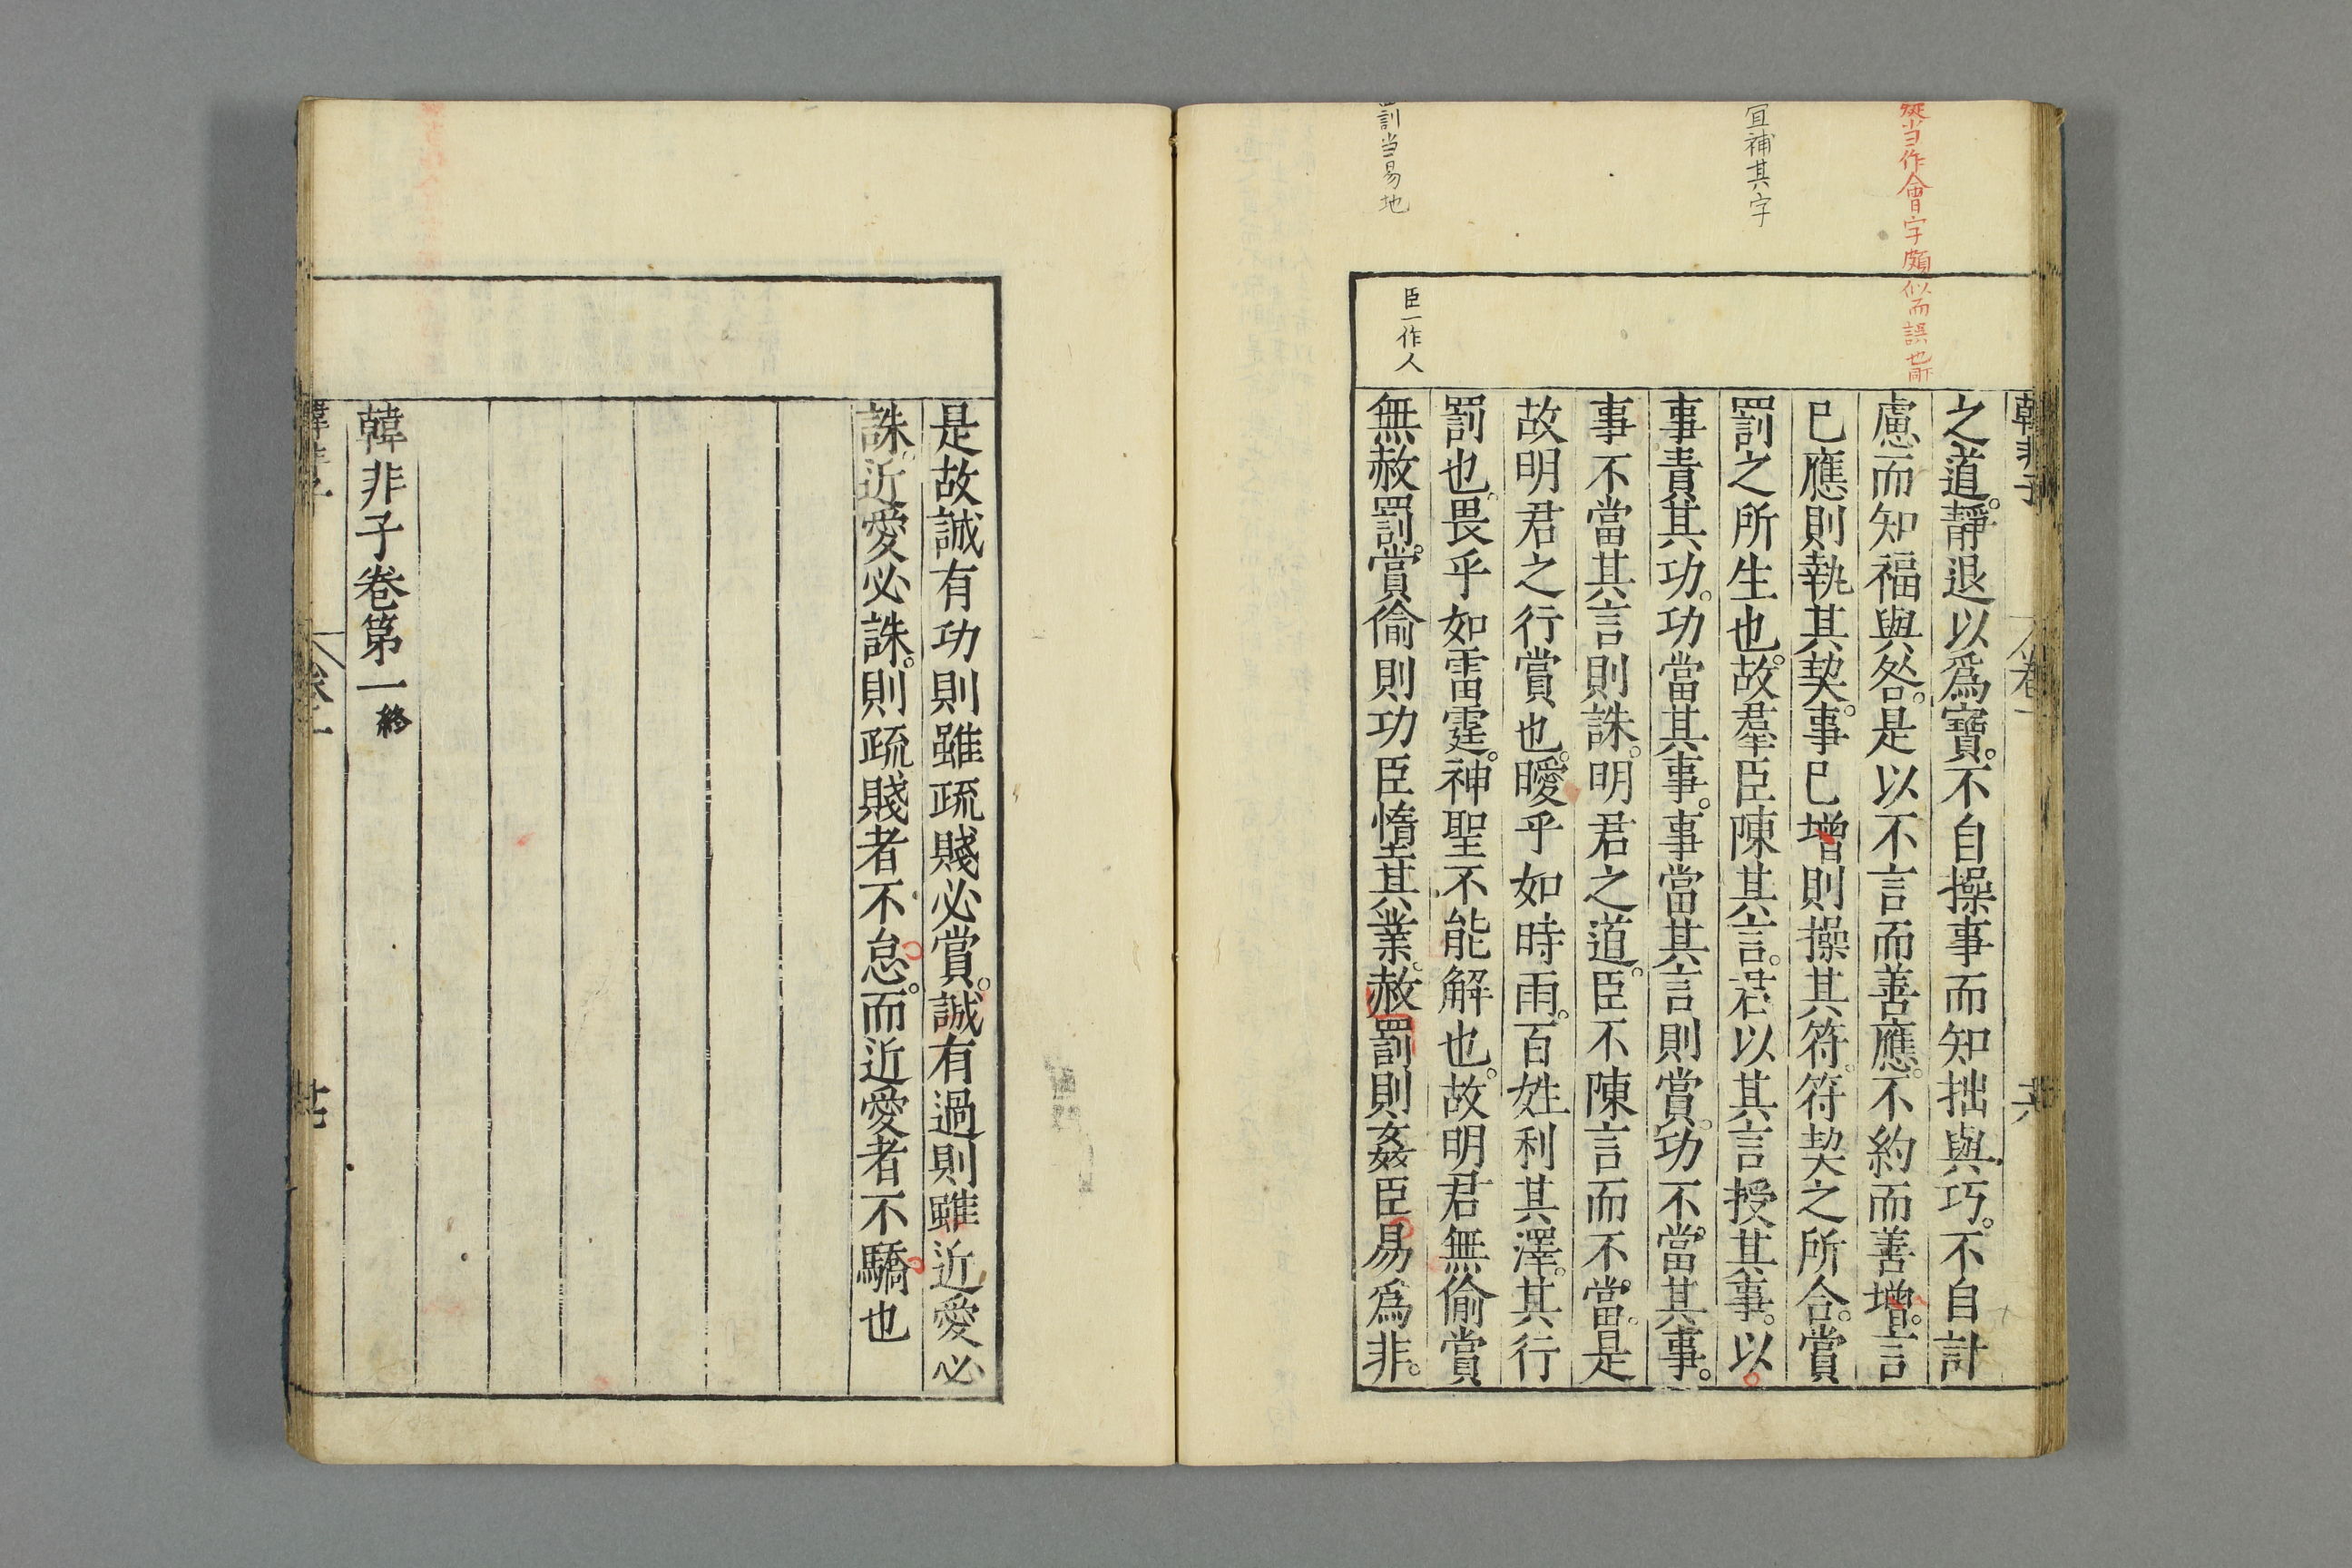 当作會字頗似而誤也
宜補其字
罰当易地
臣一作人
韓非子 卷一
之道。靜退以爲寶。不自操事而知拙與巧。不自計
慮而知福與咎。是以不言而善應。不約而善增。言
已應則執其契。事已增則操其符。符契之所合。賞
罰之所生也。故羣臣陳其言。君以其言授其事。以
事責其功。功當其事。事當其言則賞。功不當其事。
事不當其言則誅。明君之道。臣不陳言而不當。是
故明君之行賞也。曖乎如時雨。百姓利其澤。其行
罰也。畏乎如雷霆。神聖不能解也。故明君無偷賞
無赦罰。賞偷則功臣惰其業。赦罰則姦臣易爲非。
是故誠有功則雖疏賤必賞。誠有過則雖近愛必
誅。近愛必誅。則疏賤者不怠。而近愛者不驕也
韓非子卷第一終